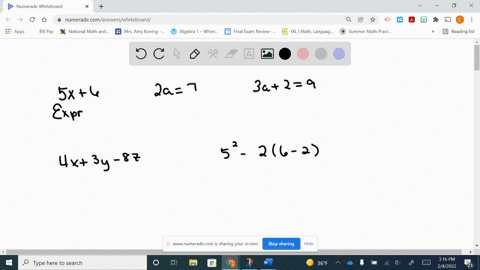 Numerade Whiteboard
numerade.com/answers/whiteboard/
Apps Bill Pay National Math and... Mrs. Amy Koning -... Algebra 1 – When... Final Exam Review -... IXL | Math, Languag... Summer Math Pract... Reading list
5x+6 2a=7 3a+2=9
Expr
4x+3y-8z 5² - 2(6-2)
www.numerade.com is sharing your screen. Stop sharing Hide
Type here to search
36°F
3:16 PM
2/4/2022